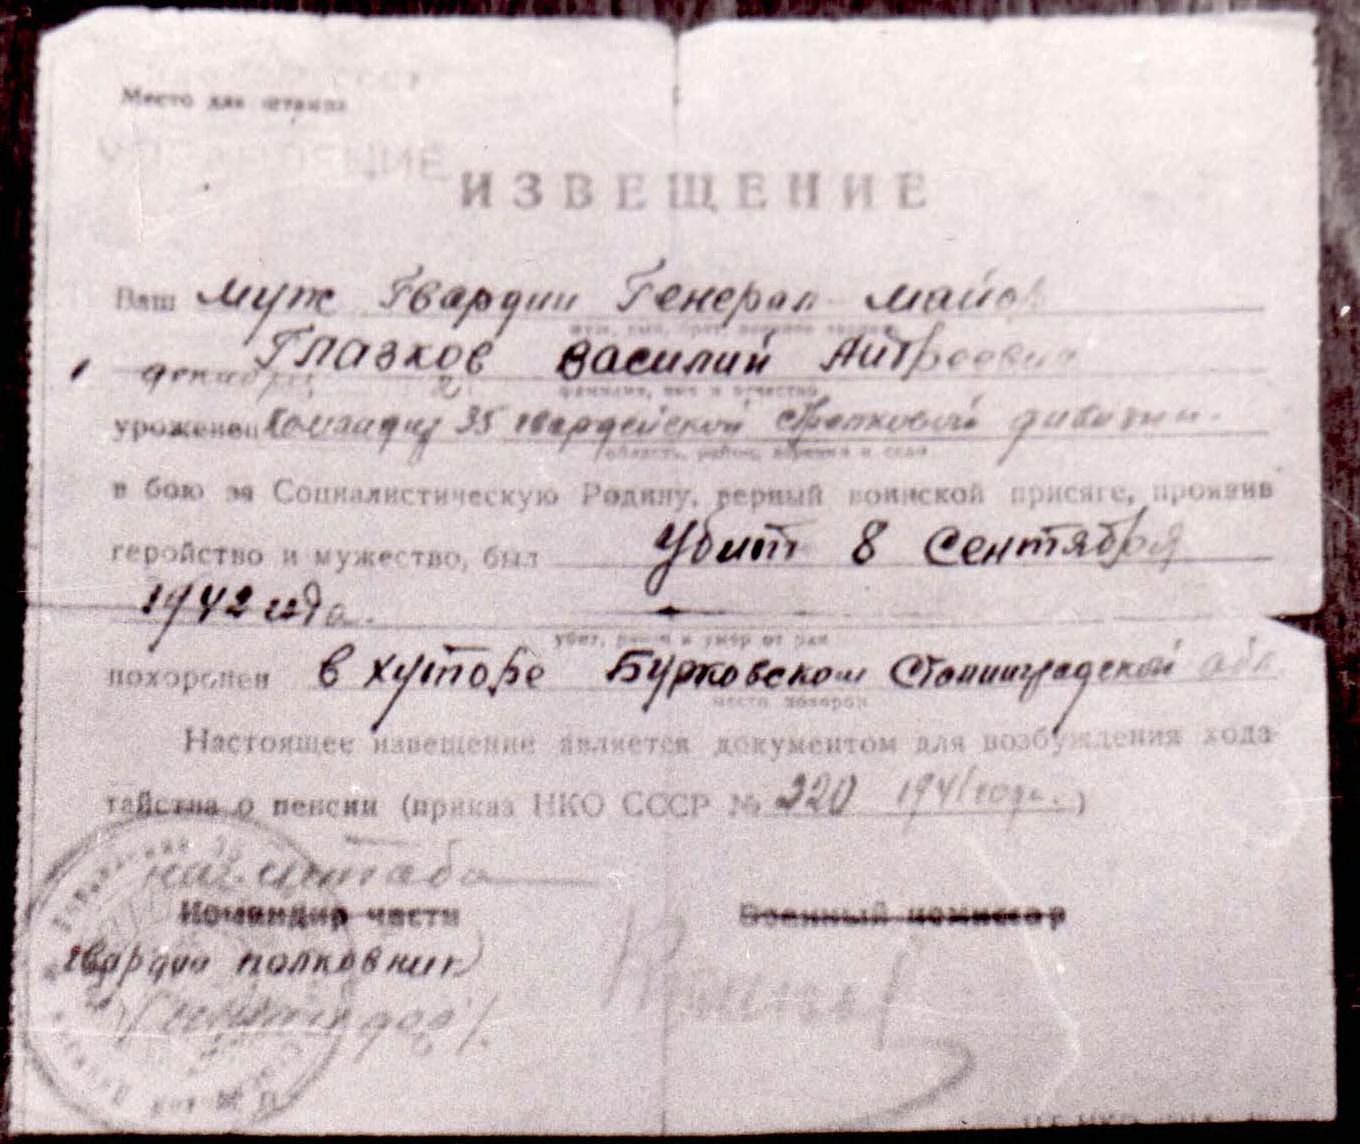 Место для штампа
УПРАВЛЕНИЕ
ИЗВЕЩЕНИЕ
Ваш муж Гвардии Генерал-майор
Глазков Василий Андреевич
фамилия, имя и отчество
уроженец Командир 35 гвардейской стрелковой дивизии.
область, район, деревня и село
в бою за Социалистическую Родину, верный воинской присяге, проявив
геройство и мужество, был убит 8 Сентября
1942 года.
убит, ранен и умер от ран
похоронен в хуторе Бурковском Сталинградской обл.
место похорон
Настоящее извещение является документом для возбуждения хода-
тайства о пенсии (приказ НКО СССР № 220 1941 года.)
нач. штаба
Командир части Военный комиссар
гвардии полковник